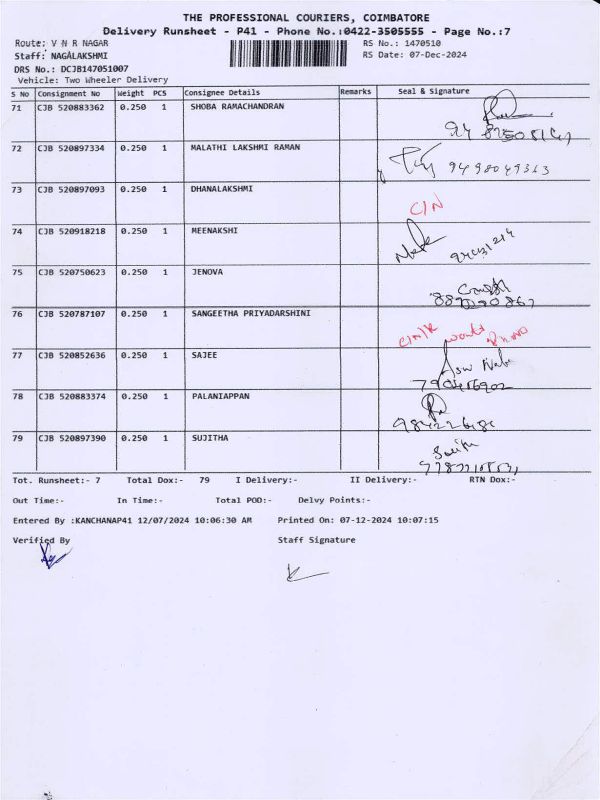 THE PROFESSIONAL COURIERS, COIMBATORE
Delivery Runsheet - P41 - Phone No.:0422-3505555 - Page No.:7
Route: V N R NAGAR RS No.: 1470510
Staff: NAGALAKSHMI RS Date: 07-Dec-2024
DRS No.: DCJB147051007
Vehicle: Two Wheeler Delivery
S No Consignment No Weight PCS Consignee Details Remarks Seal & Signature
71 CJB 520883362 0.250 1 SHOBA RAMACHANDRAN
72 CJB 520897334 0.250 1 MALATHI LAKSHMI RAMAN
9498049313
73 CJB 520897093 0.250 1 DHANALAKSHMI
C/N
74 CJB 520918218 0.250 1 MEENAKSHI
75 CJB 520750623 0.250 1 JENOVA
76 CJB 520787107 0.250 1 SANGEETHA PRIYADARSHINI
77 CJB 520852636 0.250 1 SAJEE
78 CJB 520883374 0.250 1 PALANIAPPAN
79 CJB 520897390 0.250 1 SUJITHA
Tot. Runsheet:- 7 Total Dox:- 79 I Delivery:- II Delivery:- RTN Dox:-
Out Time:- In Time:- Total POD:- Delvy Points:-
Entered By :KANCHANAP41 12/07/2024 10:06:30 AM Printed On: 07-12-2024 10:07:15
Verified By Staff Signature